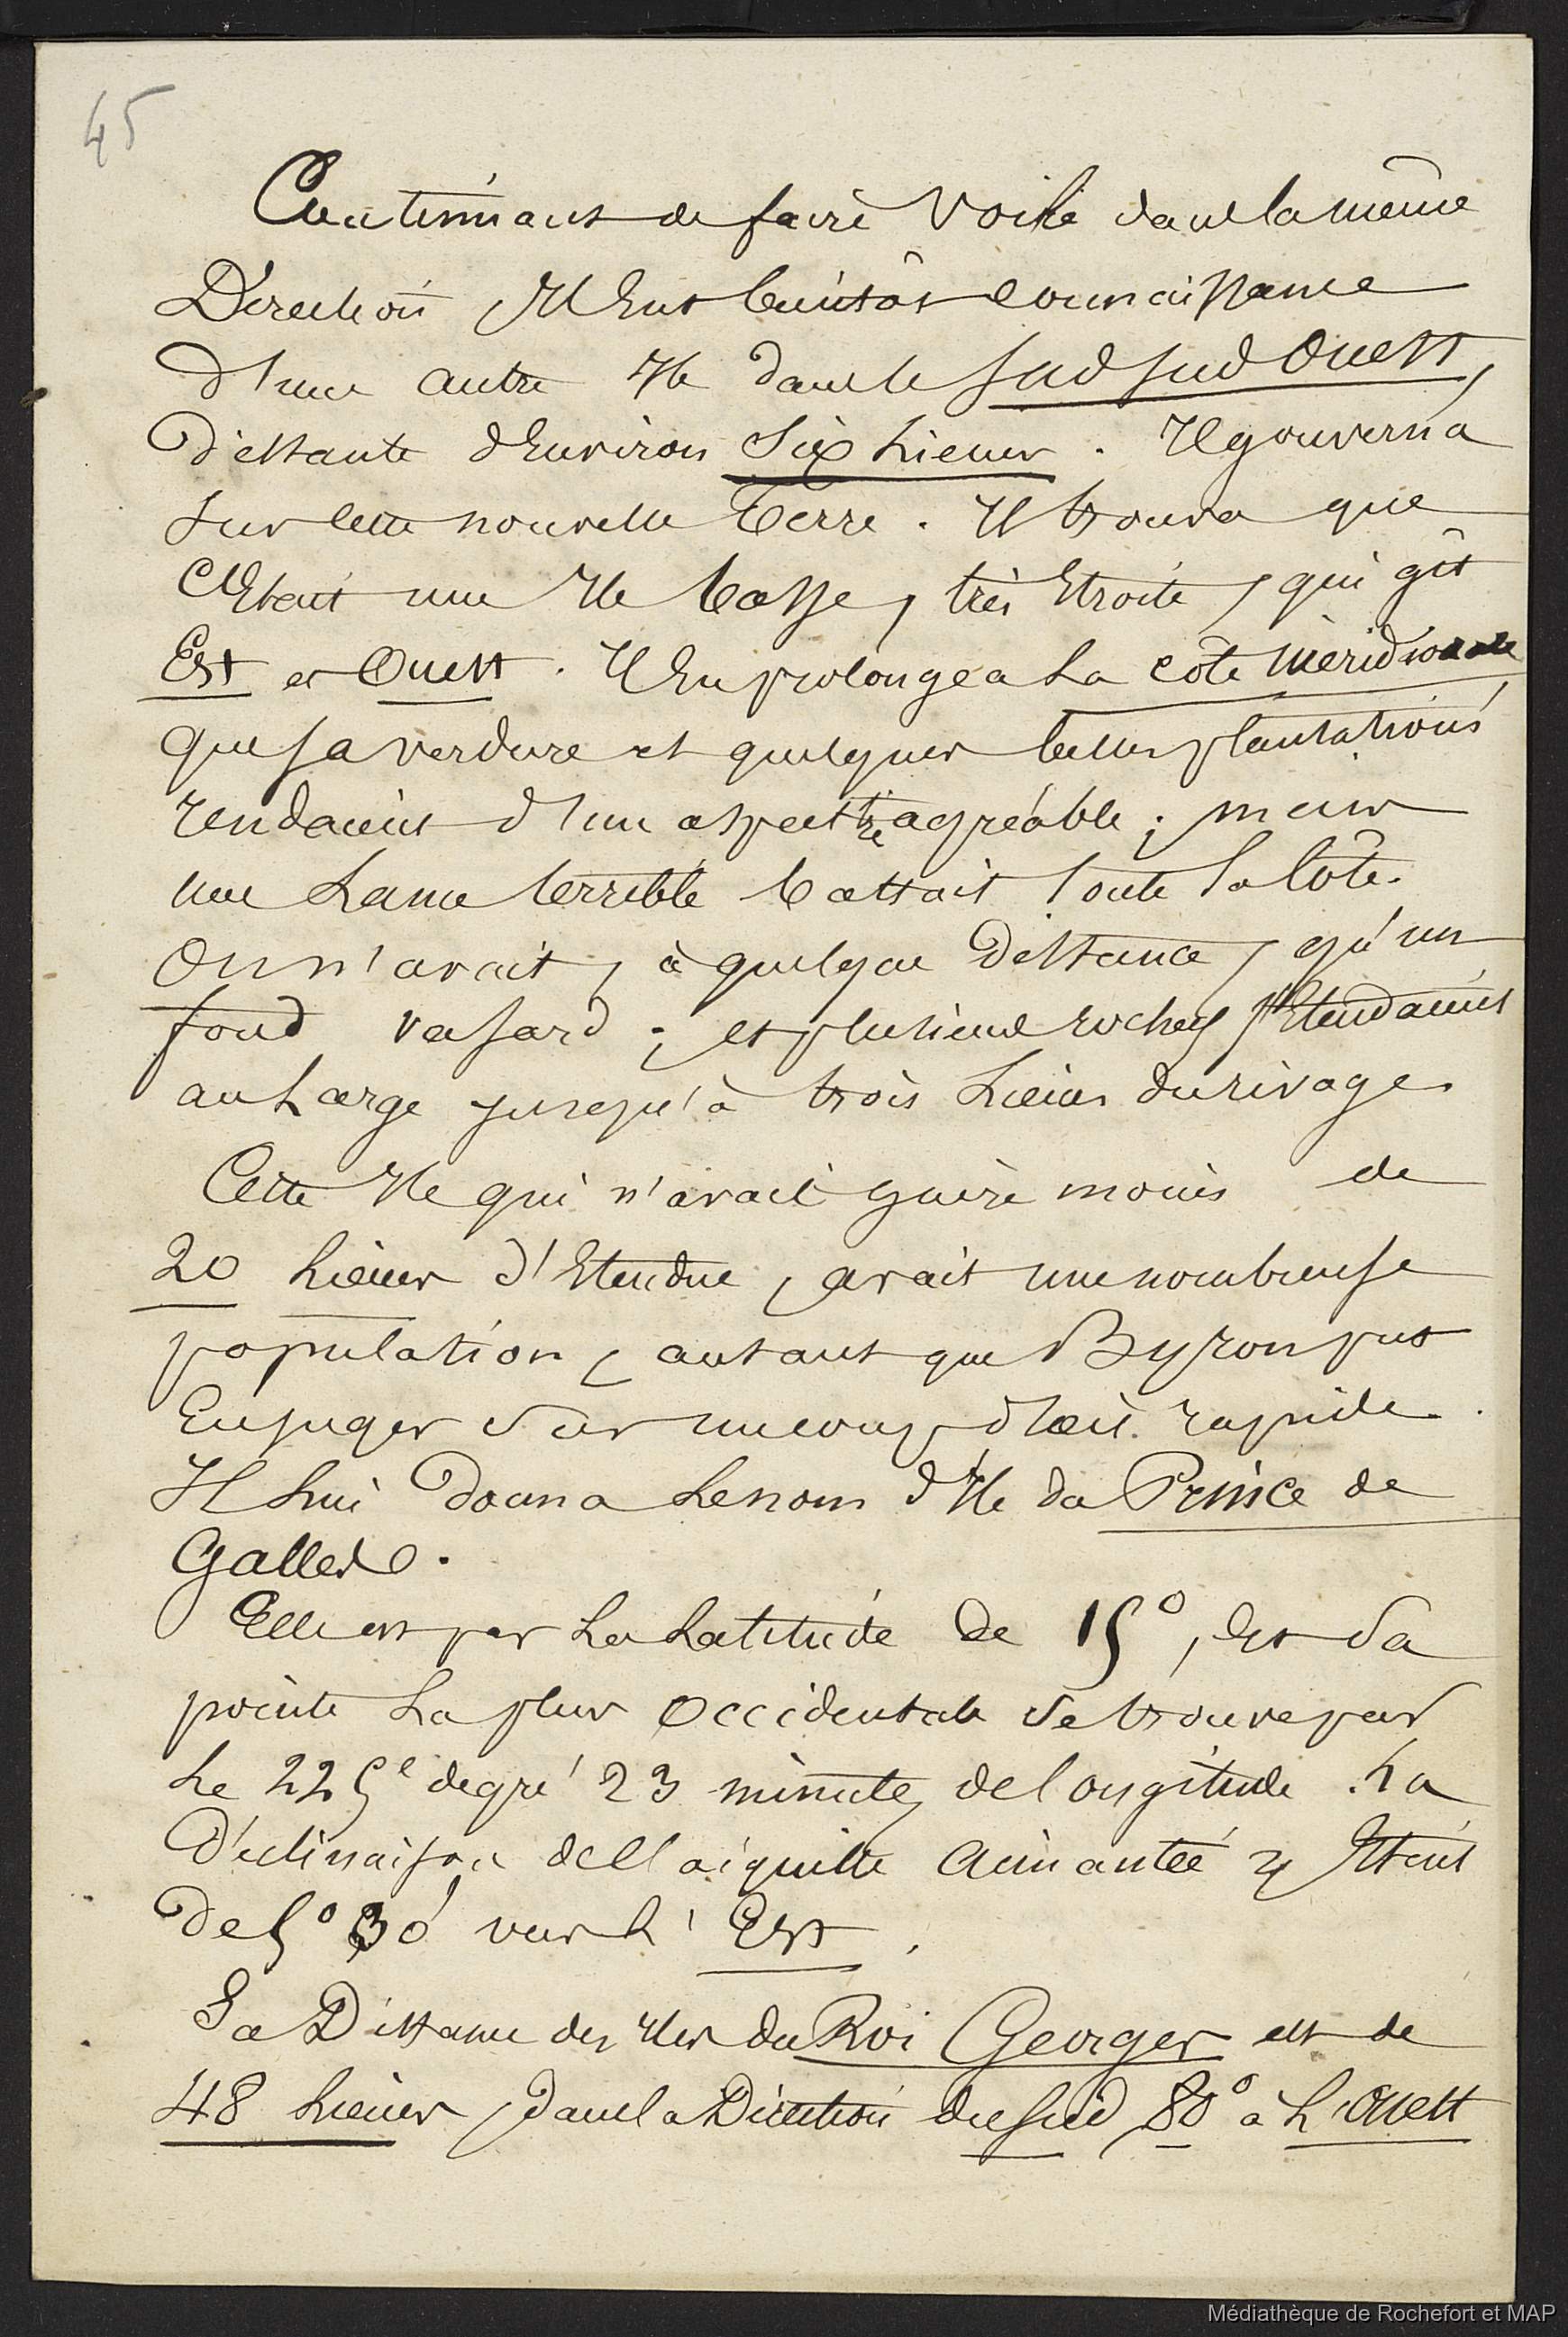 45
Continuant de faire voile dans la même
Direction, Il Eut bientôt connaissance
d'une autre Ile dans le Sud Sud Ouest,
distante d'Environ Six Lieues. Il gouverna
sur cette nouvelle terre. Il trouva que
C'Etait une Ile basse, très Etroite, qui gît
Est et Ouest. Il En prolongea La côte Méridionale
que sa verdure et quelques belles plantations
rendaient d'un aspect très agréable; mais
une Lame terrible battait toute la Côte.
On n'avait, à quelque Distance, qu'un
fond vasard; et plusieurs rochers s'Etendaient
au Large jusqu'à trois Lieues du rivage
Cette Ile qui n'avait guère moins de
20 Lieues d'Etendue, avait une nombreuse
population, autant que Byron put
En juger sur un coup d'œil rapide.
Il Lui donna Le nom d'Ile du Prince de
Galles.
Elle est par La Latitude de 15°, Et Sa
pointe La plus Occidentale Se trouve par
Le 225e degré 23 minutes de longitude. La
Déclinaison de l'aiguille aimantée y Etait
De 5° 30' vers L'Est.
Sa Distance des Iles du Roi Georges est de
48 Lieues, dans la Direction du Sud 80° à L'Ouest
Médiathèque de Rochefort et MAP